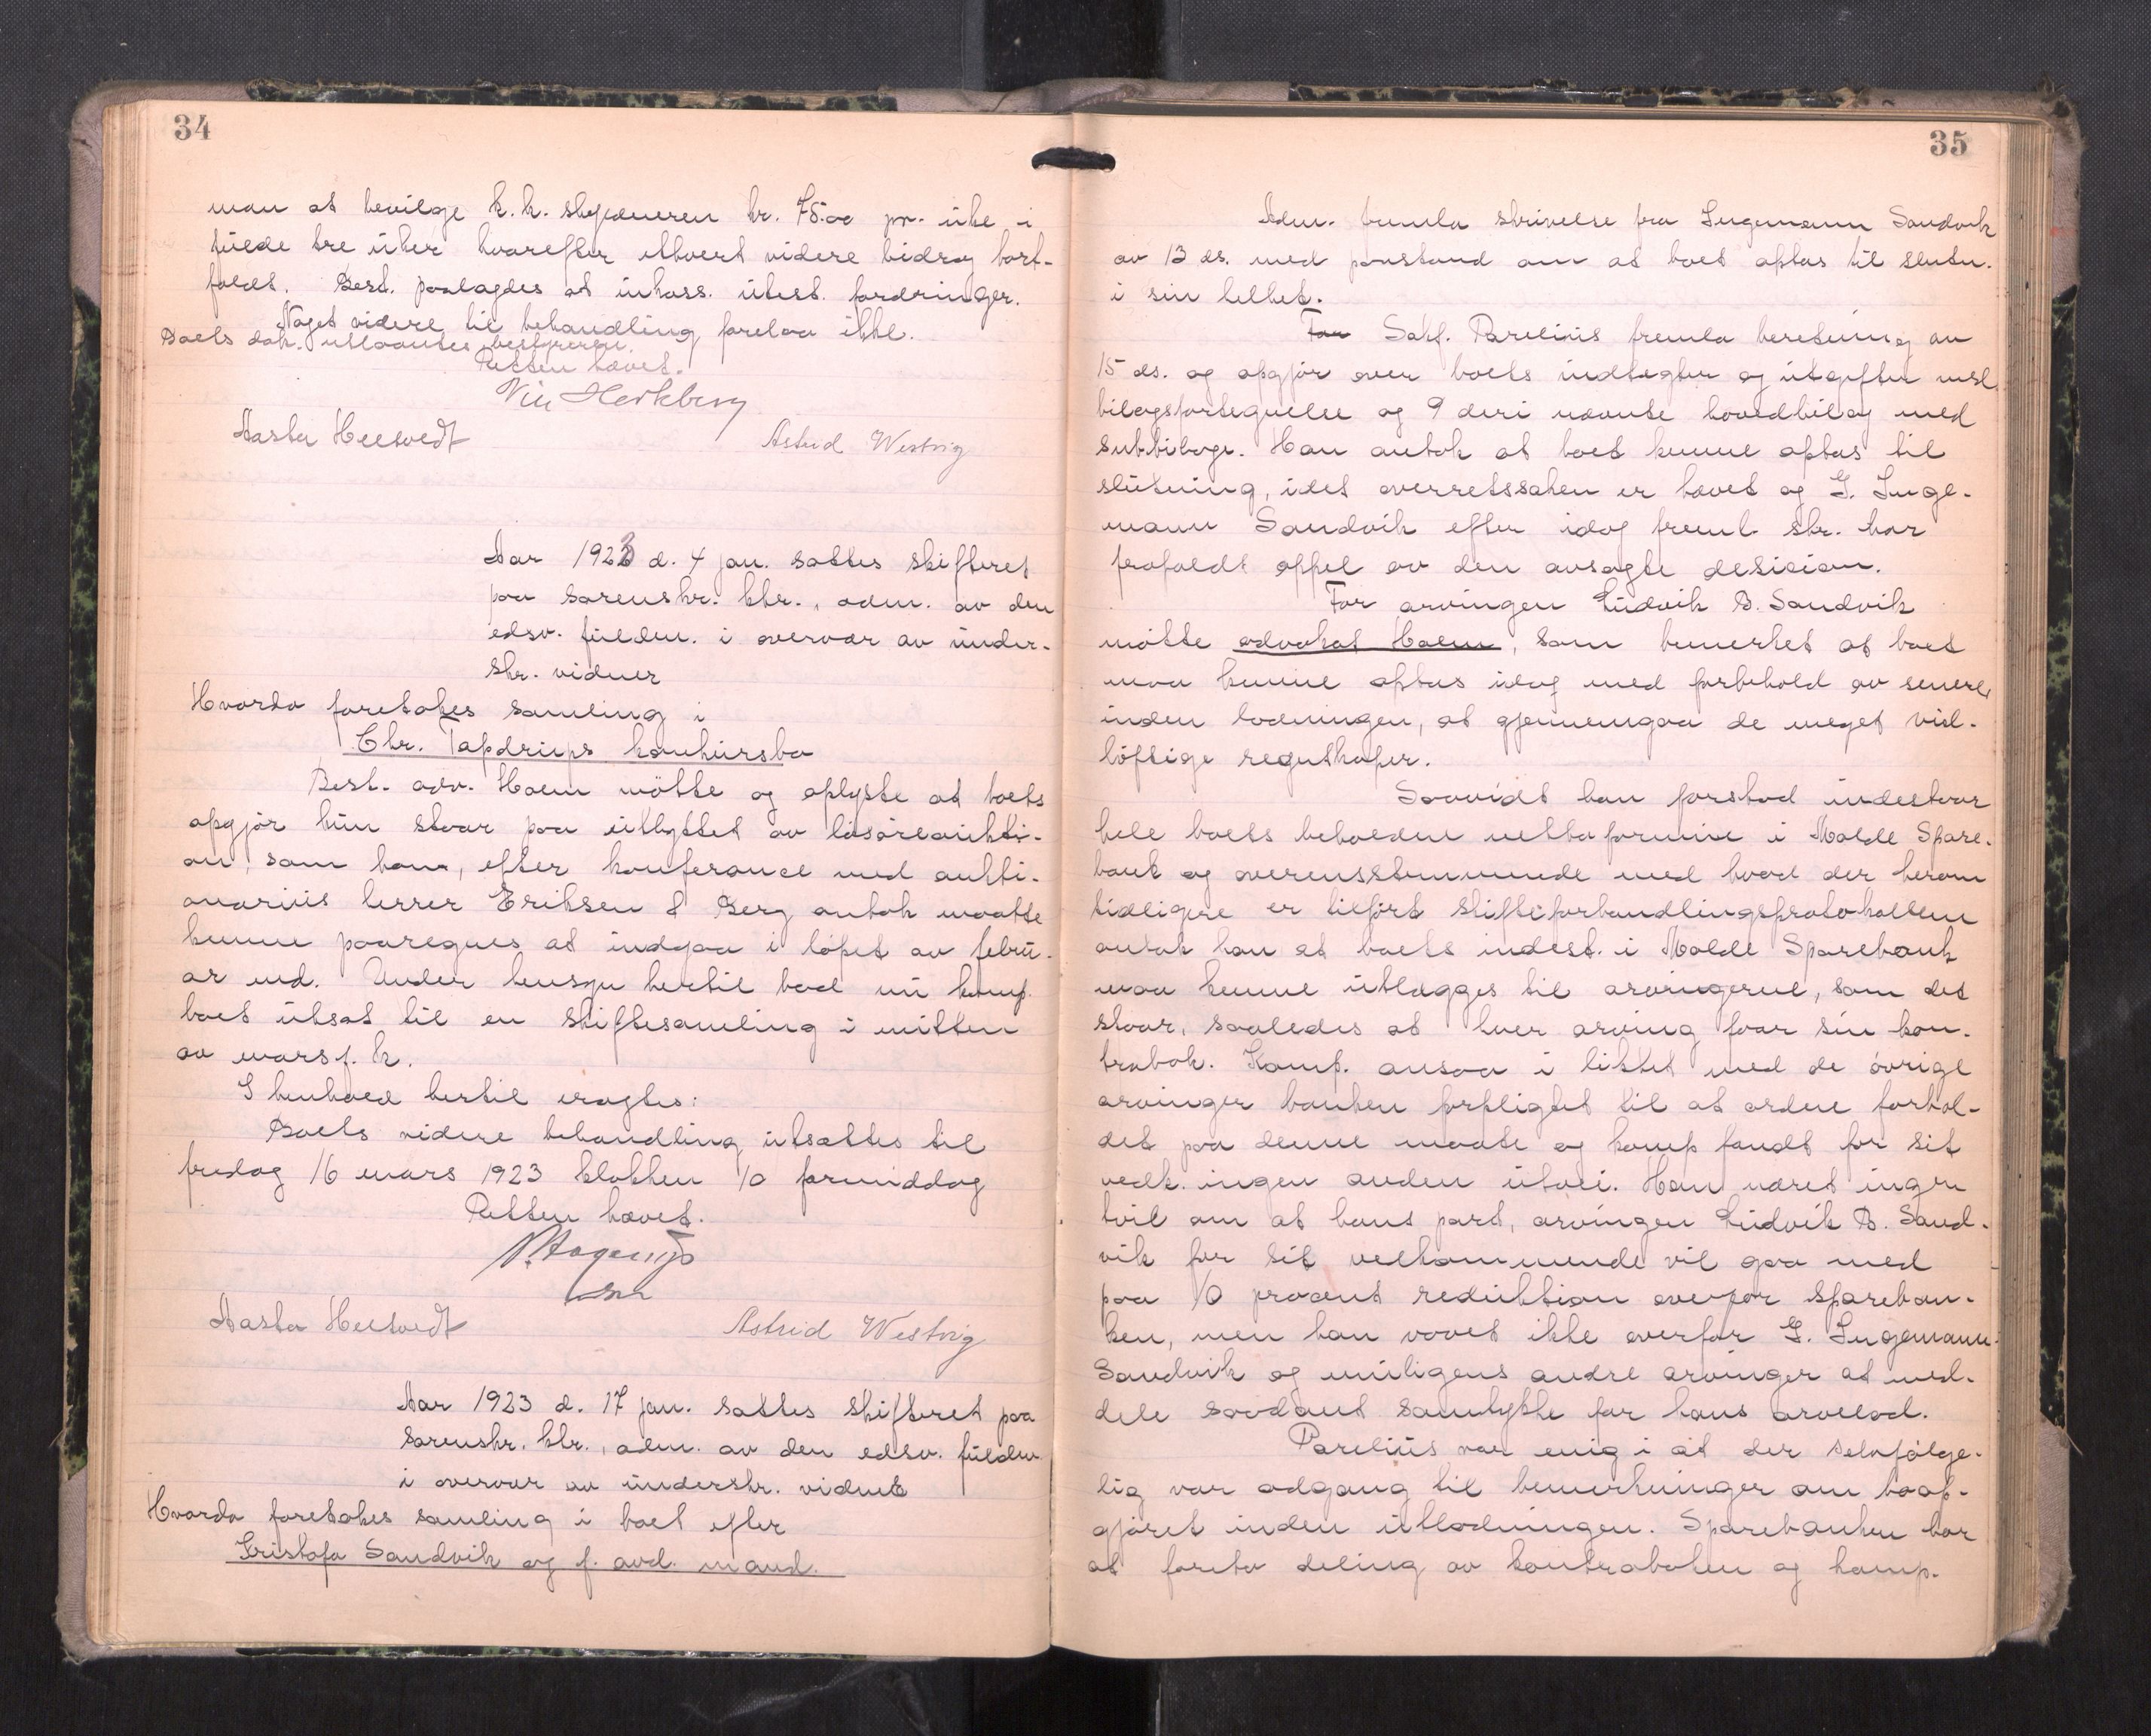 34
man at bevilge k.k. skyldneren kr. 75.00 pr. uke i
fulde tre uker hvorefter ethvert videre bidrag bort-
faldt. Best. paalagdes at inkass. utest. fordringer.
Noget videre til behandling forelaa ikke.
Boets dok. utlaantes bestyreren.
Retten hævet.
Aasta Heltvedt Astrid Westvig
Aar 1923 d. 4 jan. sattes skifteret
paa sorenskr. ktr., adm. av den
edsv. fuldm. i overvær av under-
skr. vidner
Hvorda foretokes samling i
Chr. Tapdrups konkursbo
Best. adv. Holm møtte og oplyste at boets
opgjør kun staar paa utbyttet av løsøreaukti-
on, som han, efter konferance med aukti-
onarius herrer Eriksen & Berg antok maatte
kunne paaregnes at indgaa i løpet av febru-
ar md. Under hensyn hertil bad nu komp.
boet utsat til en skiftesamling i mitten
av mars f. k.
I henhold hertil eragtes:
Boets videre behandling utsættes til
fredag 16 mars 1923 klokken 10 formiddag
Retten hævet.
Aasta Heltvedt Astrid Westvig
Aar 1923 d. 17 jan. sattes skifteret paa
sorenskr. ktr., adm. av den edsv. fuldm.
i overvær av underskr. vidner
Hvorda foretokes samling i boet efter
Kristofa Sandvik og f. avd. mand.
35
Adm. fremla skrivelse fra Ingemann Sandvik
av 13 ds. med paastand om at boet optas til slutn.
i sin helhet.
For Sakf. Parelius fremla beretning av
15 ds. og opgjør over boets indtægter og utgifter med
bilagsfortegnelse og 9 deri nævnte hovedbilag med
subbilage. Han antok at boet kunne optas til
slutning, idet overretssaken er hævet og G. Inge-
mann Sandvik efter idag freml. skr. har
frafaldt appel av den avsagte desision.
For arvingen Ludvik B. Sandvik
møtte advokat Holm, som bemerket at boet
maa kunne optas idag med forbehold av senere,
inden lodningen, at gjennemgaa de meget vid-
løftige regnskaper.
Saavidt han forstod indestaar
hele boets beholdne nettoformue i Molde Spare-
bank og overensstemmende med hvad der herom
tidligere er tilført skifteforhandlingsprotokollen
antok han at boets indest. i Molde Sparebank
maa kunne utlægges til arvingerne, som det
staar, saaledes at hver arving faar sin kon-
trabok. Komp. ansaa i likhet med de øvrige
arvinger banken forpligtet til at ordne forhol-
det paa denne maate og komp fandt for sit
vedk. ingen anden utvei. Han næret ingen
tvil om at hans part, arvingen Ludvik B. Sand-
vik for sit vedkommende vil gaa med
paa 10 procent reduktion overfor spareban-
ken, men han vovet ikke overfor G. Ingemann
Sandvik og muligens andre arvinger at med-
dele saadant samtykke for hans arvelod.
Parelius var enig i at der selvfølge-
lig var adgang til bemerkninger om boop-
gjøret inden utlodningen. Sparebanken har
at foreta deling av kontraboken og komp.